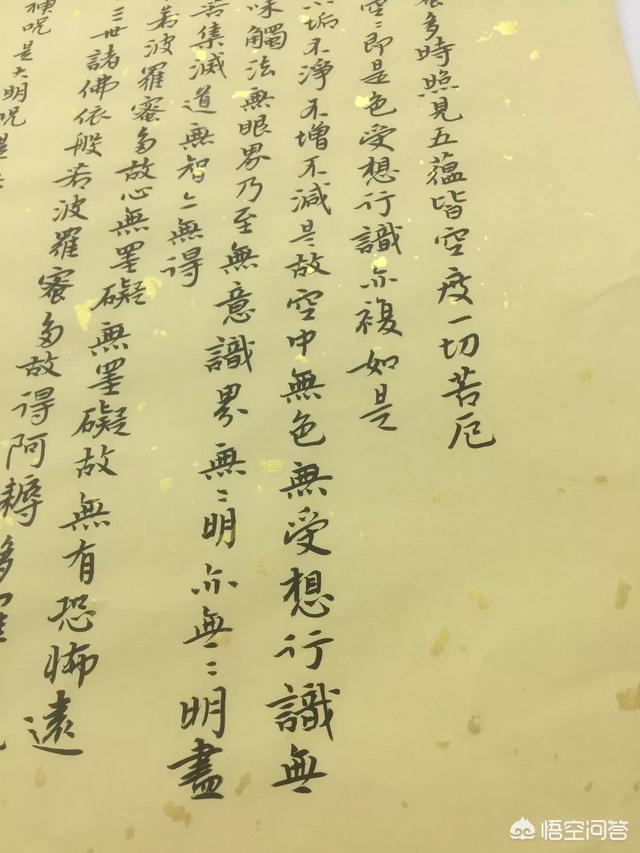 多時照見五蘊皆空度一切苦厄
空〻即是色受想行識亦複如是
垢不淨不增不減是故空中無色無受想行識無
味觸法無眼界乃至無意識界無〻明亦無〻明盡
苦集滅道無智亦無得
若波羅蜜多故心無罣礙無罣礙故無有恐怖遠
三世諸佛依般若波羅蜜多故得阿耨多羅
咒是大明咒是
悟空问答